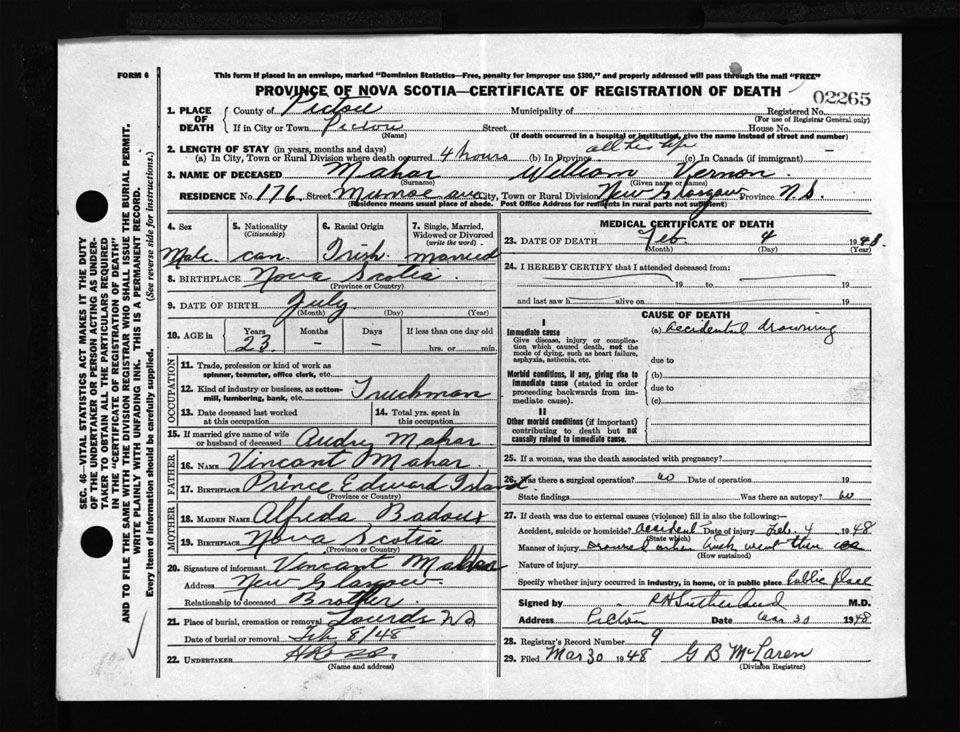 FORM 6
This form if placed in an envelope, marked "Dominion Statistics—Free, penalty for improper use $300," and properly addressed will pass through the mail "FREE"
PROVINCE OF NOVA SCOTIA—CERTIFICATE OF REGISTRATION OF DEATH
02265
1. PLACE OF DEATH { County of Pictou Municipality of Registered No.
(For use of Registrar General only)
If in City or Town Pictou Street House No.
(Name) (If death occurred in a hospital or institution, give the name instead of street and number)
2. LENGTH OF STAY (in years, months and days)
(a) In City, Town or Rural Division where death occurred 4 hours (b) In Province all his life (c) In Canada (if immigrant)
3. NAME OF DECEASED Mahar William Vernon
(Surname) (Given name or names)
RESIDENCE No. 176 Street Munroe ave City, Town or Rural Division New Glasgow Province N.S.
(Residence means usual place of abode. Post Office Address for residents in rural parts not sufficient)
4. Sex Male
5. Nationality (Citizenship) Can.
6. Racial Origin Irish
7. Single, Married, Widowed or Divorced (write the word) Married
8. BIRTHPLACE Nova Scotia
(Province or Country)
9. DATE OF BIRTH July
(Month) (Day) (Year)
10. AGE in { Years 23 Months – Days – If less than one day old hrs. or min.
OCCUPATION
11. Trade, profession or kind of work as spinner, teamster, office clerk, etc.
12. Kind of industry or business, as cotton-mill, lumbering, bank, etc. Truckman
13. Date deceased last worked at this occupation
14. Total yrs. spent in this occupation
15. If married give name of wife or husband of deceased Audry Mahar
FATHER
16. NAME Vincant Mahar
17. BIRTHPLACE Prince Edward Island
(Province or Country)
MOTHER
18. MAIDEN NAME Alfreda Badoux
19. BIRTHPLACE Nova Scotia
(Province or Country)
20. Signature of informant Vincant Mahar
Address New Glasgow
Relationship to deceased Brother
21. Place of burial, cremation or removal Lourds N S
Date of burial or removal Feb 8/48
22. UNDERTAKER
(Name and address)
MEDICAL CERTIFICATE OF DEATH
23. DATE OF DEATH Feb. 4 1948
(Month) (Day) (Year)
24. I HEREBY CERTIFY that I attended deceased from:
19 to 19
and last saw h alive on 19
CAUSE OF DEATH
I
Immediate cause (a) accidental drowning
Give disease, injury or complication which caused death, not the mode of dying, such as heart failure, asphyxia, asthenia, etc.
due to
Morbid conditions, if any, giving rise to immediate cause (stated in order proceeding backwards from immediate cause).
(b)
due to
(c)
II
Other morbid conditions (if important) contributing to death but not causally related to immediate cause.
25. If a woman, was the death associated with pregnancy?
26. Was there a surgical operation? no Date of operation 19
State findings Was there an autopsy? no
27. If death was due to external causes (violence) fill in also the following:—
Accident, suicide or homicide? accident Date of injury Feb. 4 1948
(State which)
Manner of injury Drowned when truck went thru ice
(How sustained)
Nature of injury
Specify whether injury occurred in industry, in home, or in public place Public place
Signed by R H Sutherland M.D.
Address Pictou Date Mar 30 1948
28. Registrar's Record Number 9
29. Filed Mar 30 1948 G B McLaren
(Division Registrar)
SEC. 46—VITAL STATISTICS ACT MAKES IT THE DUTY
OF THE UNDERTAKER OR PERSON ACTING AS UNDER-
TAKER TO OBTAIN ALL THE PARTICULARS REQUIRED
IN THE "CERTIFICATE OF REGISTRATION OF DEATH"
AND TO FILE THE SAME WITH THE DIVISION REGISTRAR WHO SHALL ISSUE THE BURIAL PERMIT.
WRITE PLAINLY WITH UNFADING INK. THIS IS A PERMANENT RECORD.
Every item of information should be carefully supplied. (See reverse side for instructions.)